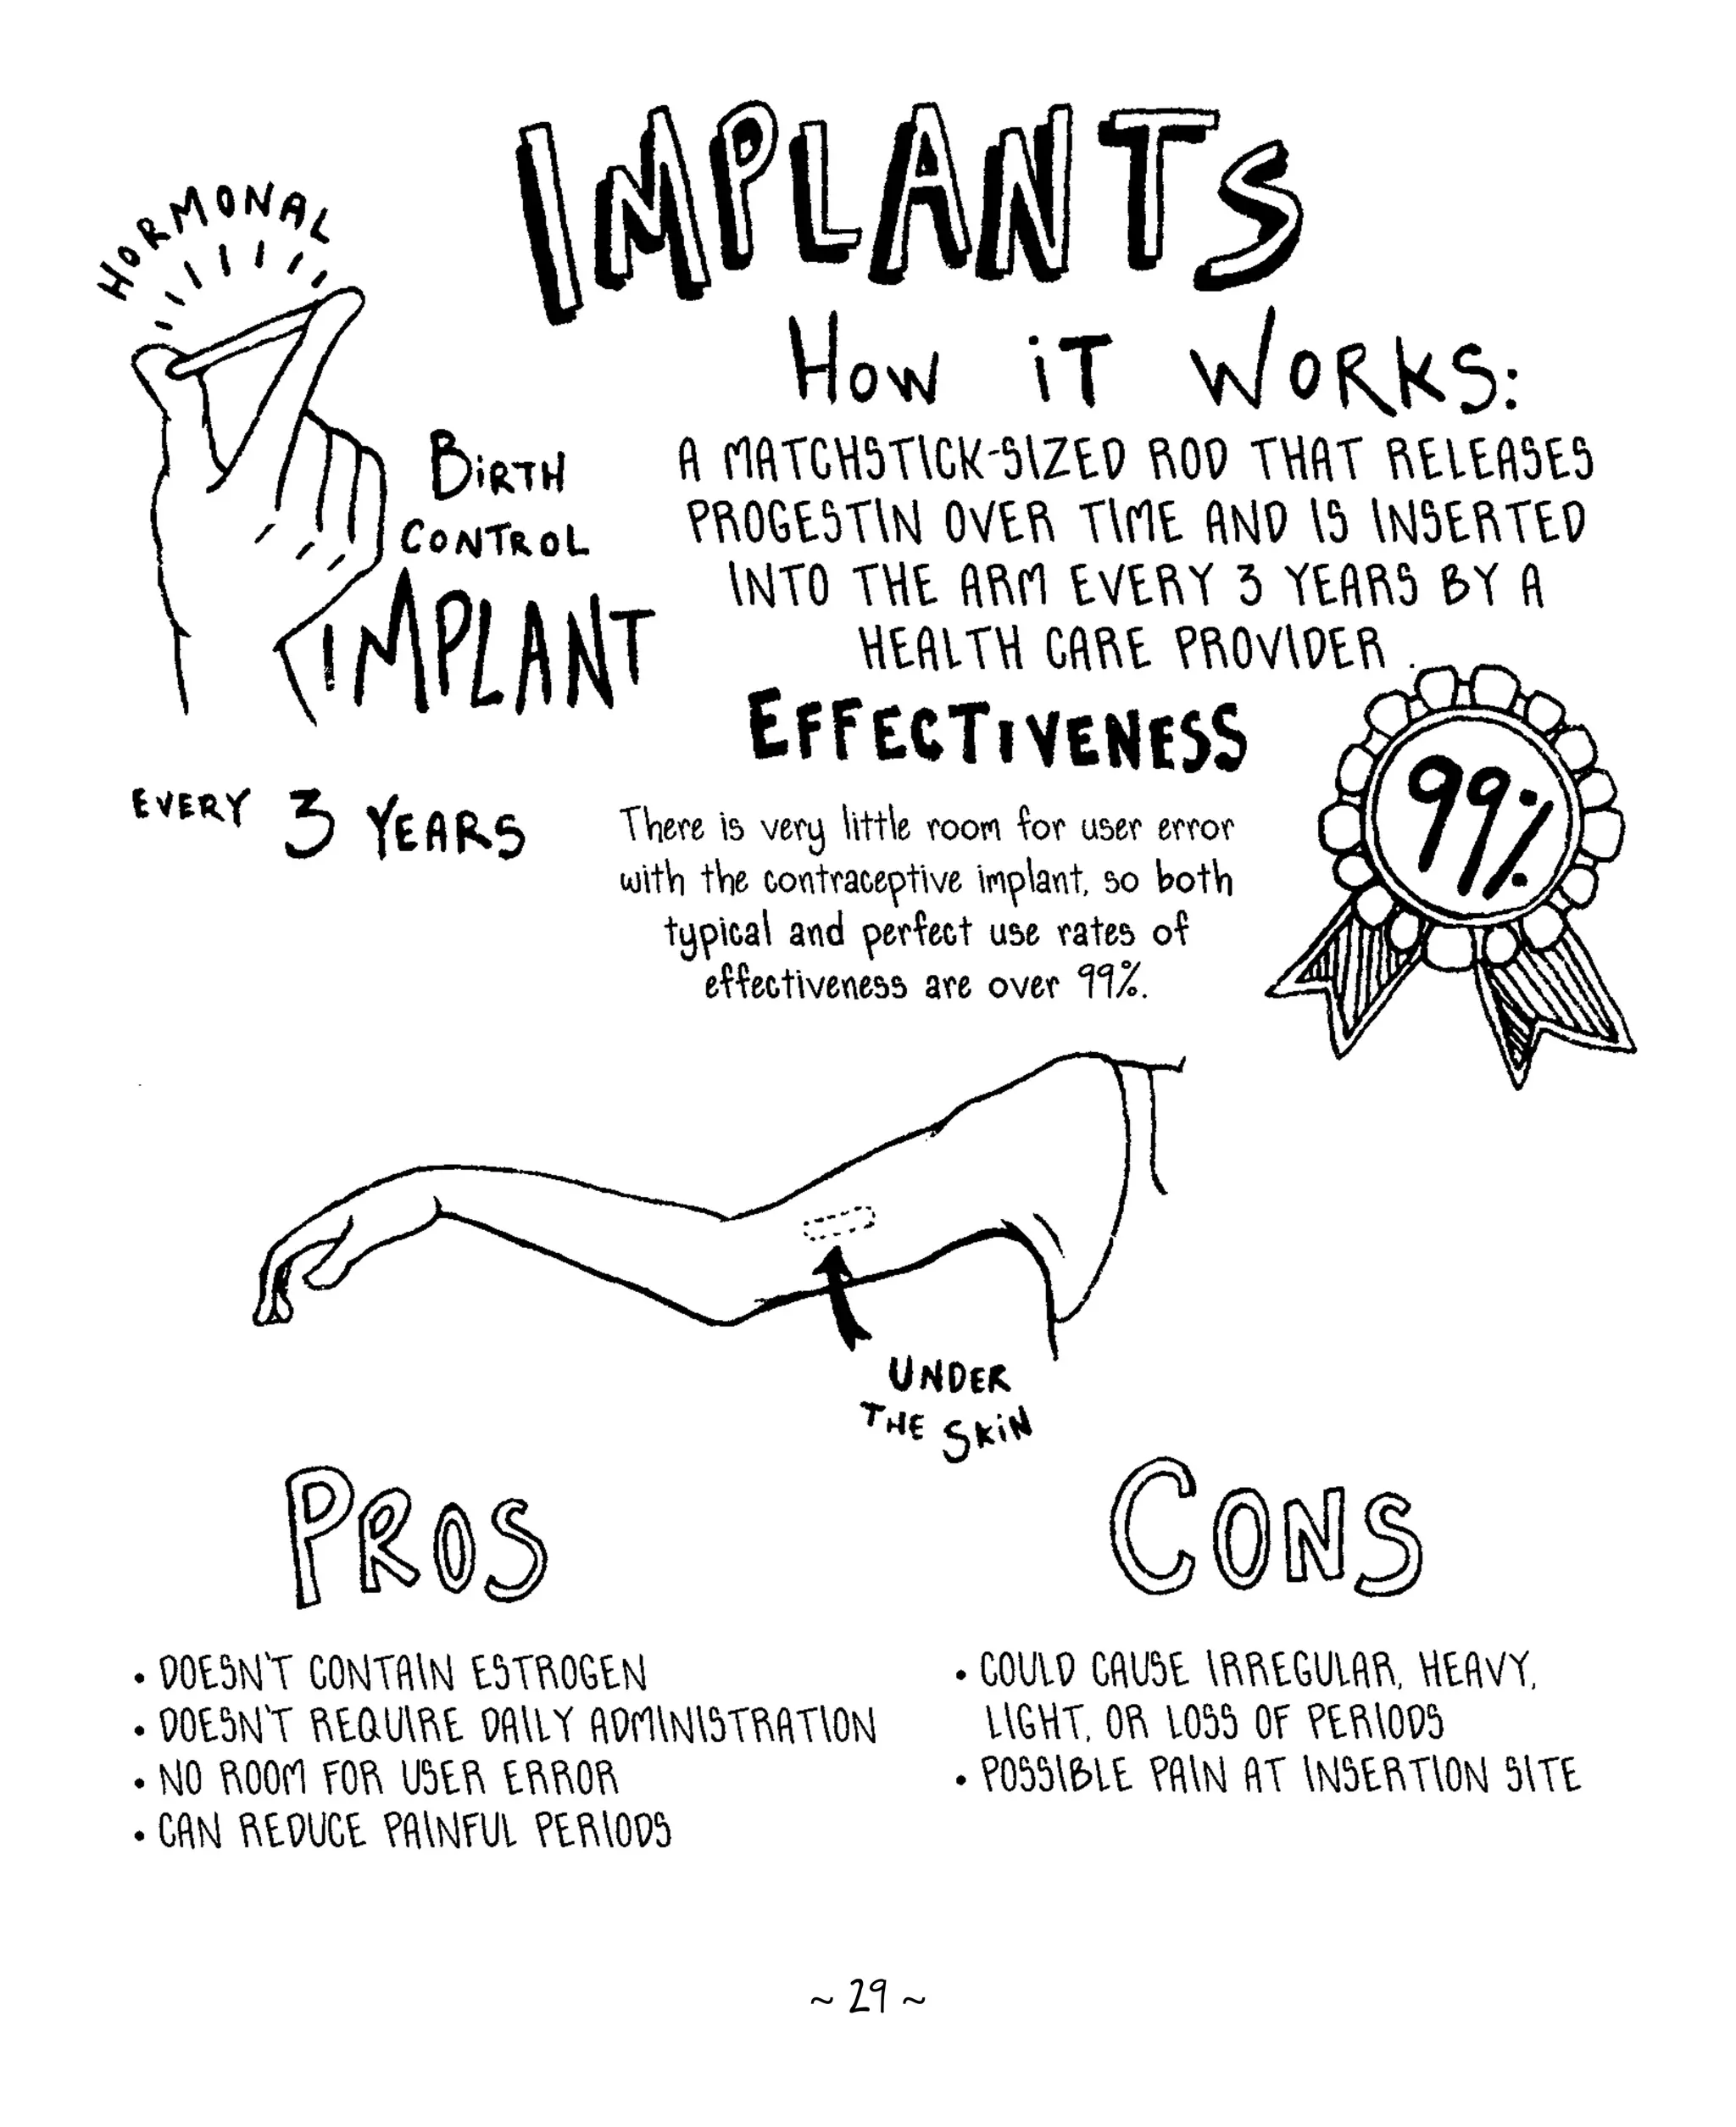 IMPLANTS
HORMONAL
BIRTH
CONTROL
IMPLANT
EVERY 3 YEARS
HOW iT WORKS:
A MATCHSTICK-SIZED ROD THAT RELEASES
PROGESTIN OVER TIME AND IS INSERTED
INTO THE ARM EVERY 3 YEARS BY A
HEALTH CARE PROVIDER.
EFFECTIVENESS
There is very little room for user error
with the contraceptive implant, so both
typical and perfect use rates of
effectiveness are over 99%.
99%
UNDER
THE SKiN
PROS
• DOESN'T CONTAIN ESTROGEN
• DOESN'T REQUIRE DAILY ADMINISTRATION
• NO ROOM FOR USER ERROR
• CAN REDUCE PAINFUL PERIODS
CONS
• COULD CAUSE IRREGULAR, HEAVY,
LIGHT, OR LOSS OF PERIODS
• POSSIBLE PAIN AT INSERTION SITE
~ 29 ~